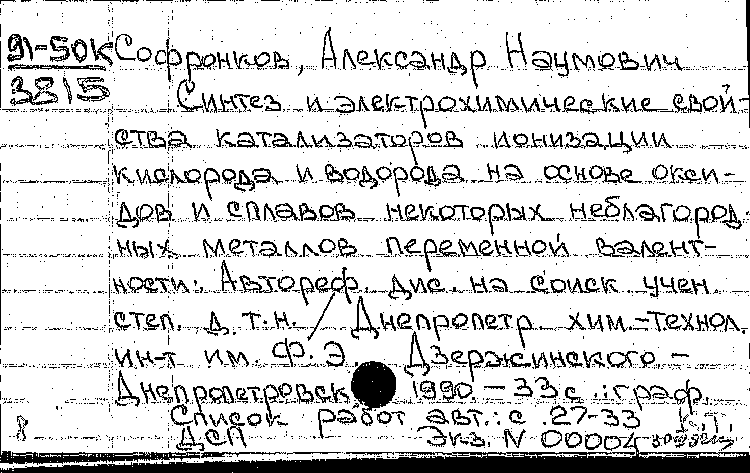 91-50К Софронков, Александр Наумович
3815
Синтез и электрохимические свой-
ства катализаторов ионизации
кислорода и водорода на основе окси-
дов и сплавов некоторых неблагород-
ных металлов переменной валент-
ности: Автореф. дис. на соиск учен.
степ. д. т.н. Днепропетр. хим.-технол.
ин-т им. Ф. Э. Дзержинского -
Днепропетровск 1990. - 33 с .: граф.
Список работ авт.: с .27-33 К.Т.
8 ДСП Экз. N 00004